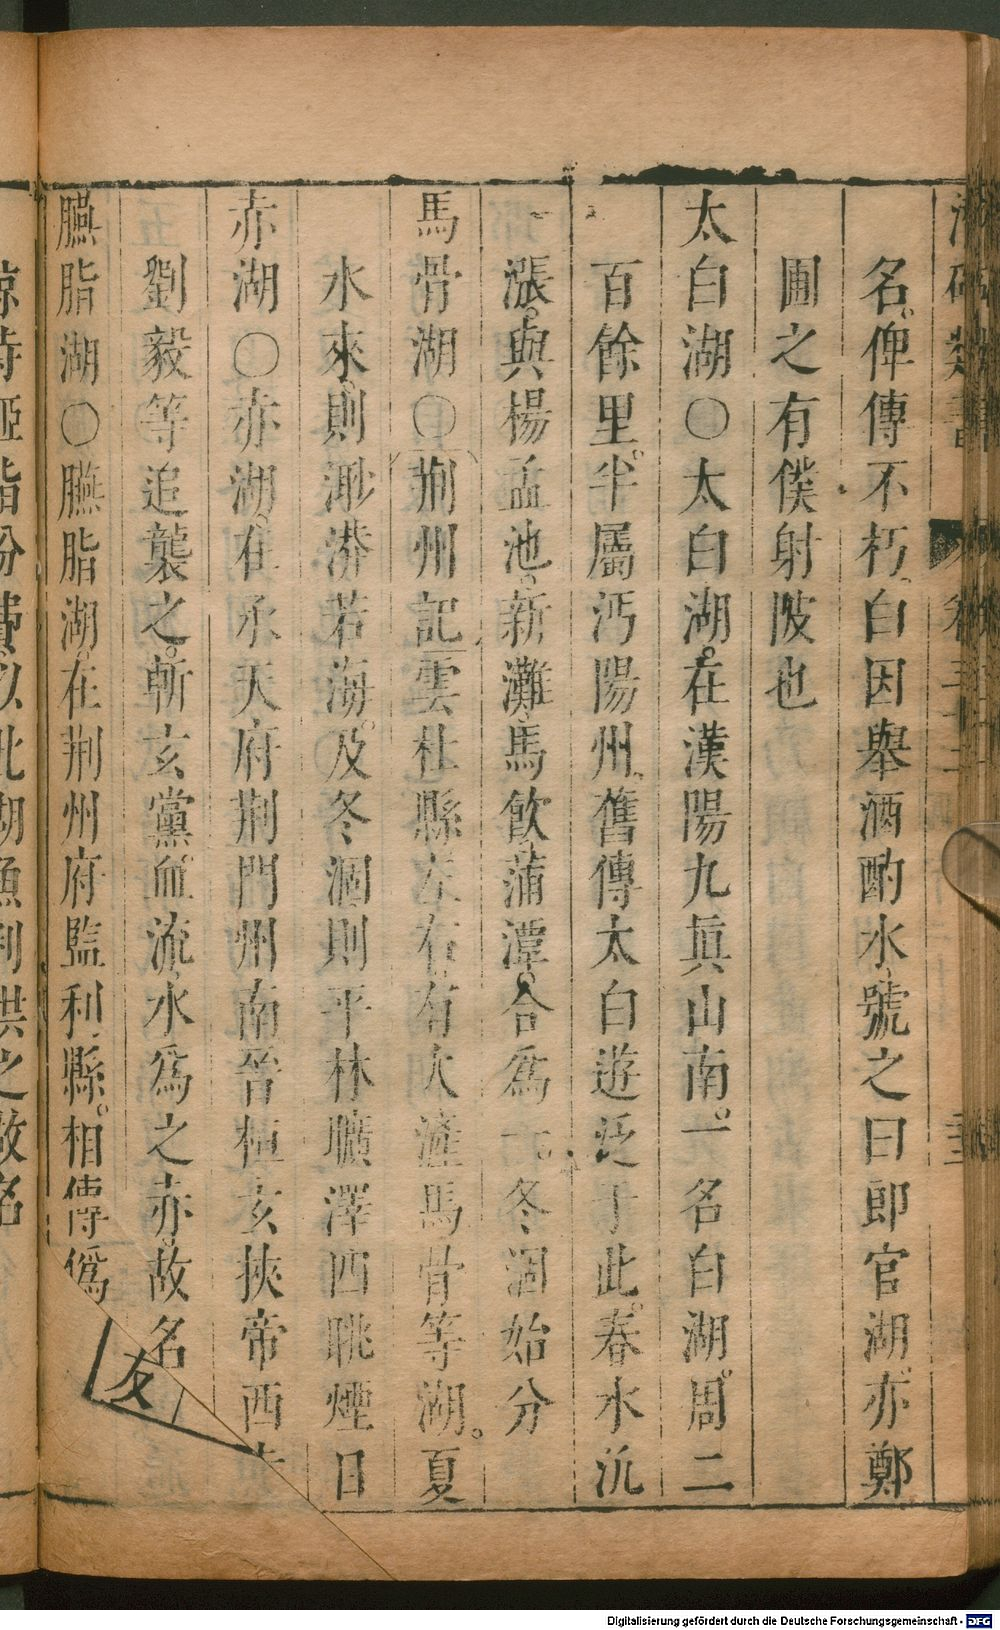 名俾傳不朽白因舉酒酌水號之曰郎官湖亦鄭
圃之有僕射陂也
太白湖○太白湖在漢陽九真山南一名白湖周二
百餘里半屬沔陽州舊傳太白遊泛于此春水沉
漲與楊孟池新灘馬飲蒲潭合爲一冬涸始分
馬骨湖○荊州記雲杜縣左右有大滻馬骨等湖夏
水來則渺漭若海及冬涸則平林曠澤四眺煙日
赤湖○赤湖在承天府荊門州南晉桓玄挾帝西
劉毅等追襲之斬玄黨血流水爲之赤故名
臙脂湖○臙脂湖在荊州府監利縣相傳爲
友
以此湖魚利供之故名
Digitalisierung gefördert durch die Deutsche Forschungsgemeinschaft - DFG